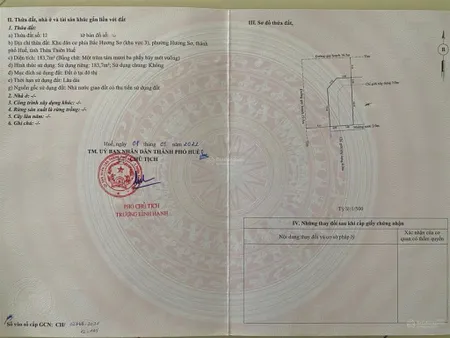 II. Thửa đất, nhà ở và tài sản khác gắn liền với đất
1. Thửa đất:
a) Thửa đất số: tờ bản đồ
b) Địa chỉ thửa đất: Khu dân cư phía Bắc Hương Sơ (khu vực 3), phường Hương Sơ, thành
phố Huế, tỉnh Thừa Thiên Huế
c) Diện tích: 183,7m² (Bằng chữ: Một trăm tám mươi ba phẩy bảy mét vuông)
d) Hình thức sử dụng: Sử dụng riêng: 183,7m²; Sử dụng chung: Không
đ) Mục đích sử dụng đất: Đất ở tại đô thị
e) Thời hạn sử dụng đất: Lâu dài
g) Nguồn gốc sử dụng đất: Nhà nước giao đất có thu tiền sử dụng đất
2. Nhà ở: -/-
3. Công trình xây dựng khác: -/-
4. Rừng sản xuất là rừng trồng: -/-
5. Cây lâu năm: -/-
6. Ghi chú: -/-
Huế, ngày tháng
TM. ỦY BAN NHÂN DÂN THÀNH PHỐ HUẾ
CHỦ TỊCH
PHÓ CHỦ TỊCH
TRƯƠNG ĐÌNH HẠNH
Số vào sổ cấp GCN: CH
III. Sơ đồ thửa đất,
B
Tỷ lệ 1/500
IV. Những thay đổi sau khi cấp giấy chứng nhận
Nội dung thay đổi và cơ sở pháp lý
Xác nhận của cơ
quan có thẩm quyền